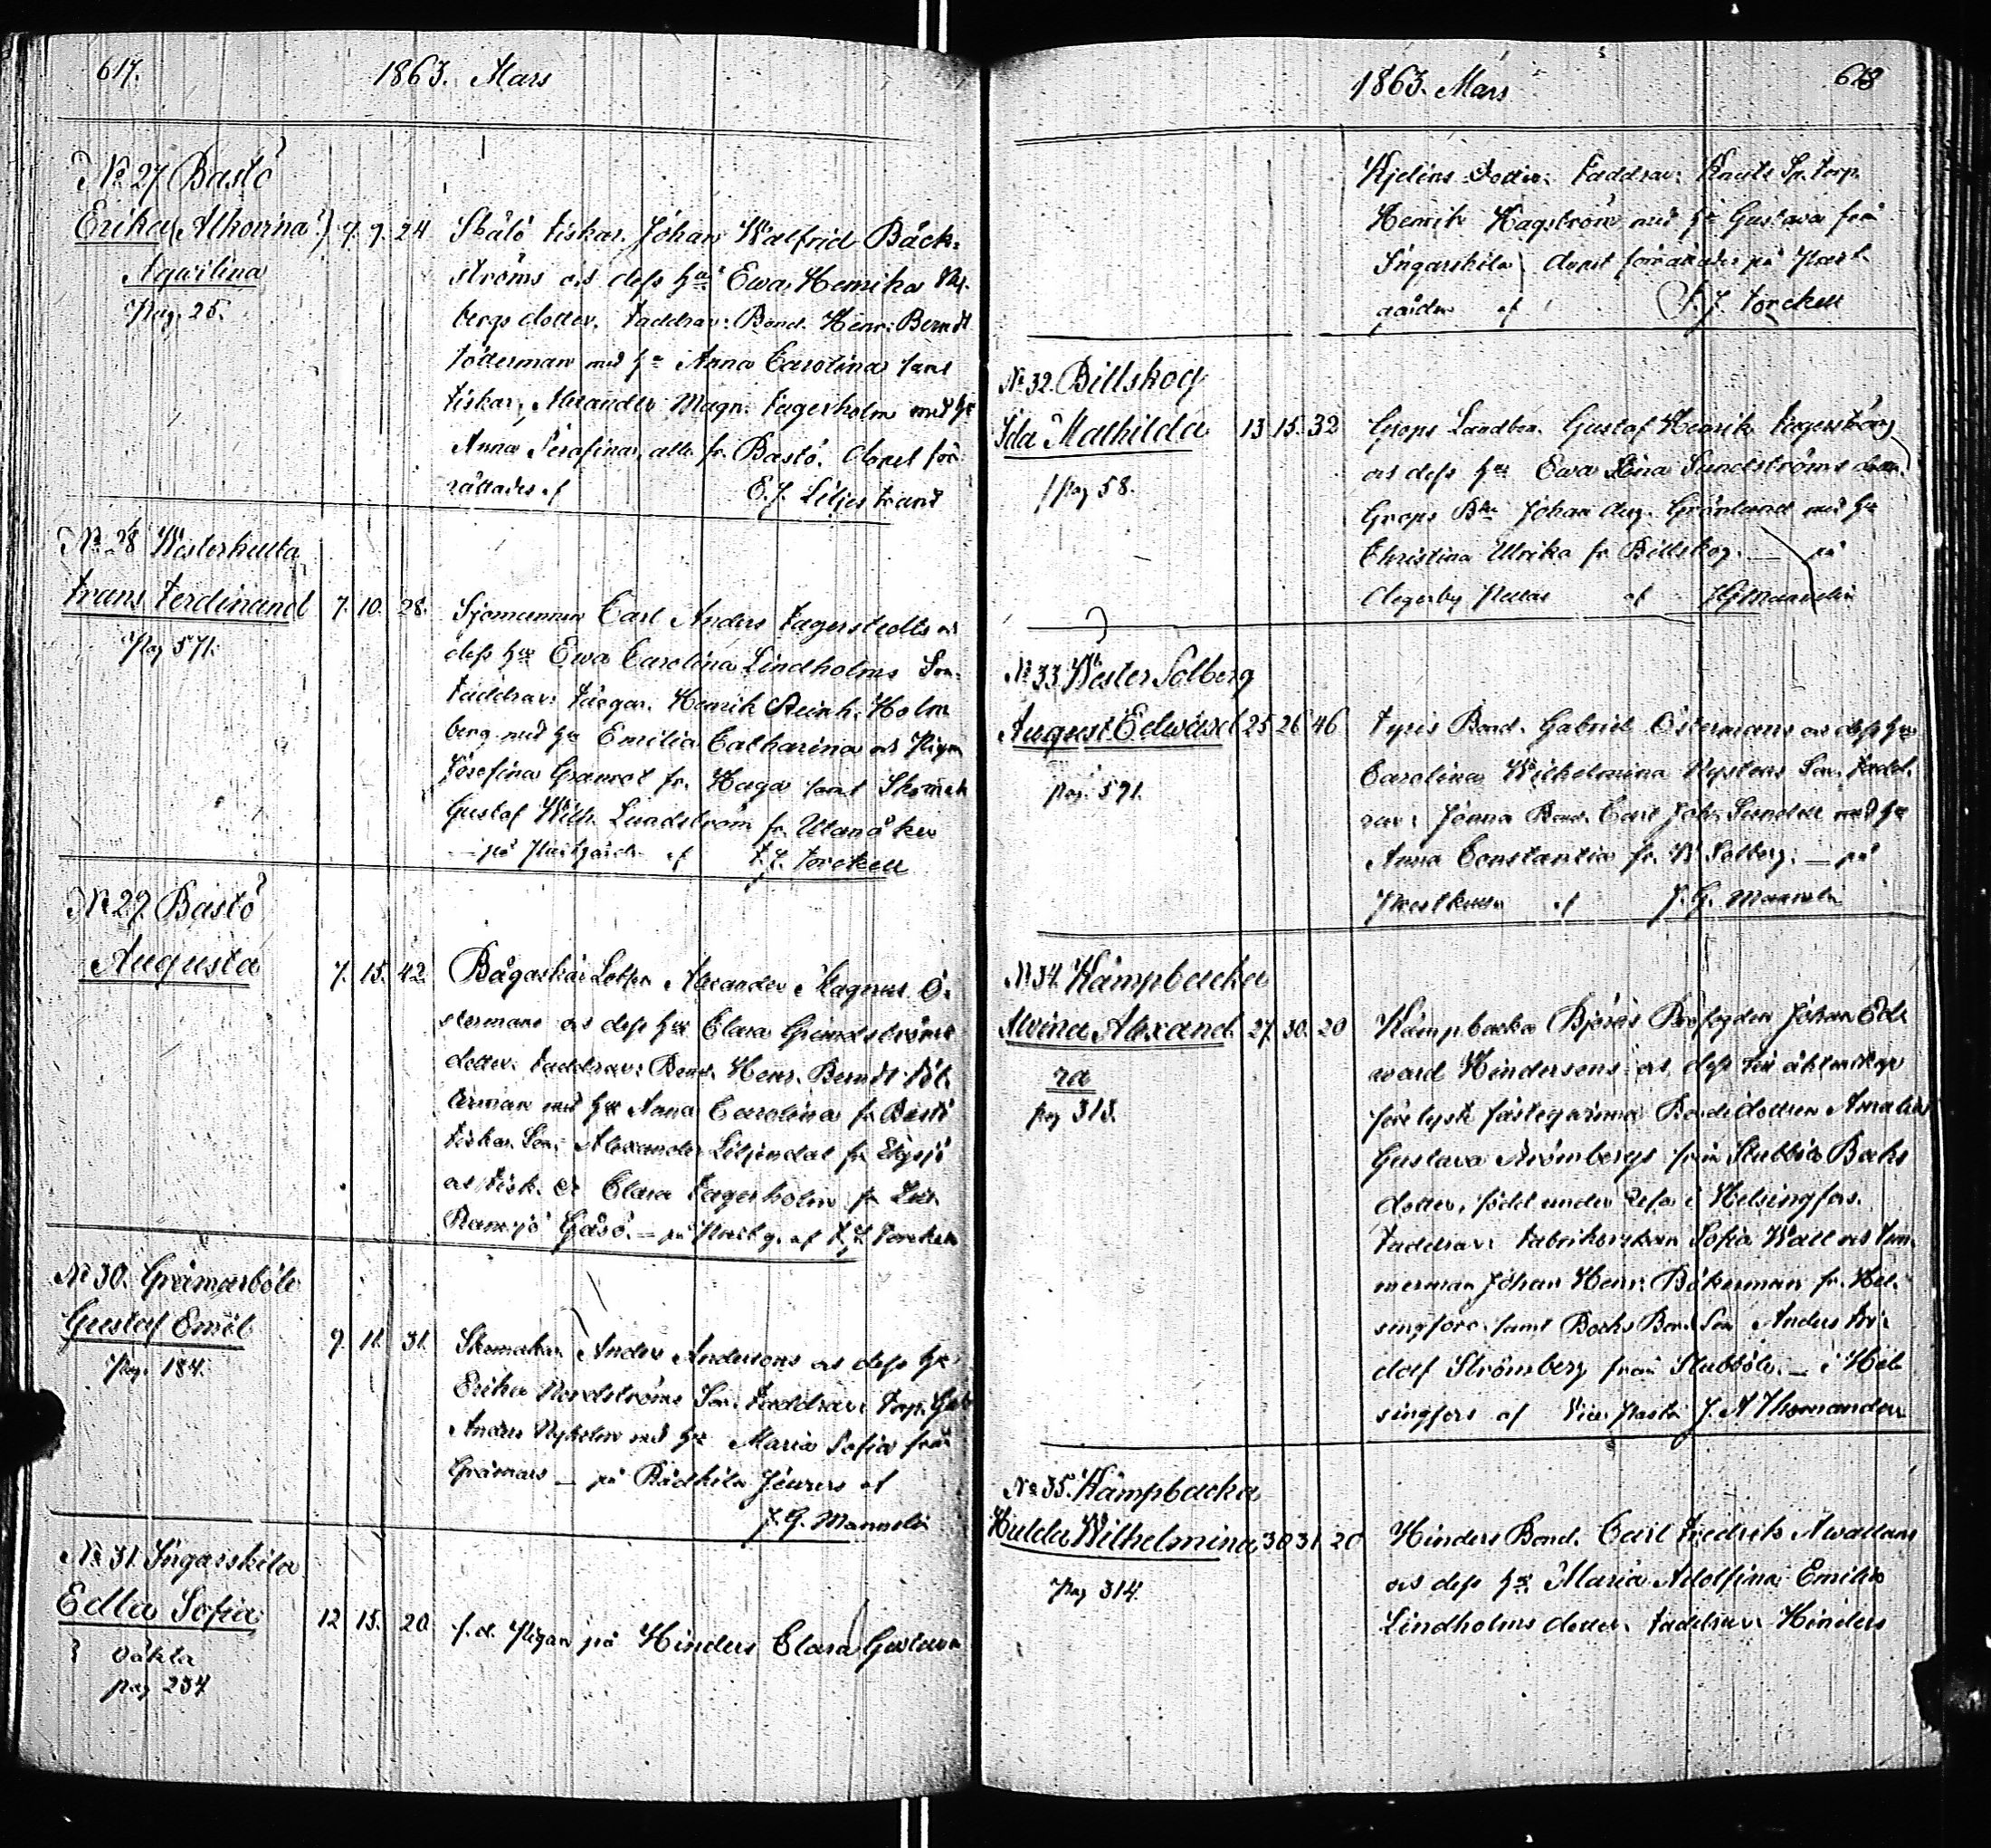 617. 1863. Mars
No 27 Bastö
Erika (Alhorina!) 7. 9. 24
Aqwilina
Pag. 25.
Skålö Fiskar. Johan Walfrid Bäck-
ströms o dess hu Ewa Henrika
bergs dotter. Faddrar: Bond. Henr: Berndt
Söderman med hu Anna Carolina samt
Fiskar. Alexander Magn. Fagerholm med hu
Anna Serafina, alle fr. Bastö. Dopet för-
rättades af E. J. Liljestrand
No 28 Westerkulla
Frans Ferdinand 7. 10. 28.
Pag 571.
Sjömannen Carl Anders Fagerstedts o
dess hu Ewa Carolina Lindholms Son.
Faddrar: Henrik Reinh. Holm
berg med hu Emilia Catharina o Pigan
Josefina Granrot fr. Haga samt Skomak
Gustaf Wilh. Lundström fr. Utanåker
— på Prestgård. af F. J. Forckell
No 29. Bastö
Augusta 7. 15. 42.
Bågaskär Alexander Magnus Ö-
stermans o dess hu Clara Grundströms
dotter. Faddrar: Bond. Henr. Berndt Söd
erman med hu Anna Carolina fr Bastö
Fiskar. Son. Alexander Liljendal fr Elgsjö
o Fisk. Clara Fagerholm fr
Ramsjö Gåsö. — på Prestg. af F. J. Forckell
No 30. Gråmarböle
Gustaf Emil 9. 11. 31.
Pag. 184.
Skomakar. Anders Anderssons o dess hu
Erika Nordströms Son. Faddrar: Torp.
Anders Nyholm med hu Maria Sofia från
Gråmars — på Rådkila af
J. G. Mannelin
No 31. Ingarskila
Edla Sofia 12 15. 20
oäkta
pag 234
f. d. Pigan på Hinders Clara Gustava
1863. Mars 618
Kjelins Dotter. Faddrar: Knuts Sp. Torp.
Henrik Hagström med hu Gustava från
Ingarskila. dopet förrättades på Prest-
gården af F. J. Forckell
No 32. Billskog
Ida Mathilda 13 15. 32
pag 58.
Grops Landbon. Gustaf Henrik Fagerströms
o dess hu Ewa Lena Sundströms dotter.
Grops Johan Aug. Grönlund med hu
Christina Ulrika fr Billskog. — på
Degerby Pellas af J G Mannelin
No 33. Wester Solberg
August Edward 25 26 46
pag. 571.
Tyris Bond. Gabriel Östermans o dess hu
Carolina Wilhelmina Nystens Son. Fadd-
rar: Jönna Bond. Carl Joh. Sundell med hu
Anna Constantia fr. W Solberg. — på
Prestkulla af J. G. Mannelin
No 34. Kämpbacka
Alvina Alexand- 27. 30. 20
ra
pag 313.
Kämpbacka Bjérès Brofogden Johan Ed-
ward Hindersons o dess till äktenskap
förelyste fästeqvinna Bondedottren Amalia
Gustava Strömbergs från Slubböle Backs
dotter, född under resa i Helsingfors.
Faddrar: Fabrikorskan Sofia Wall o Tim-
merman Johan Henr. Båkerman fr. Hel-
singfors samt Backs Bond. Son Anders Ari-
dolf Strömberg från Slubböle. — i Hel-
singfors af Vice Pastor J. A Thomander
No 35. Kämpbacka
Hulda Wilhelmina 30 31 20
Pag 314.
Hinders Bond. Carl Fredrik Awellans
o dess hu Maria Adolfina Emilia
Lindholms dotter. Faddrar: Hinders